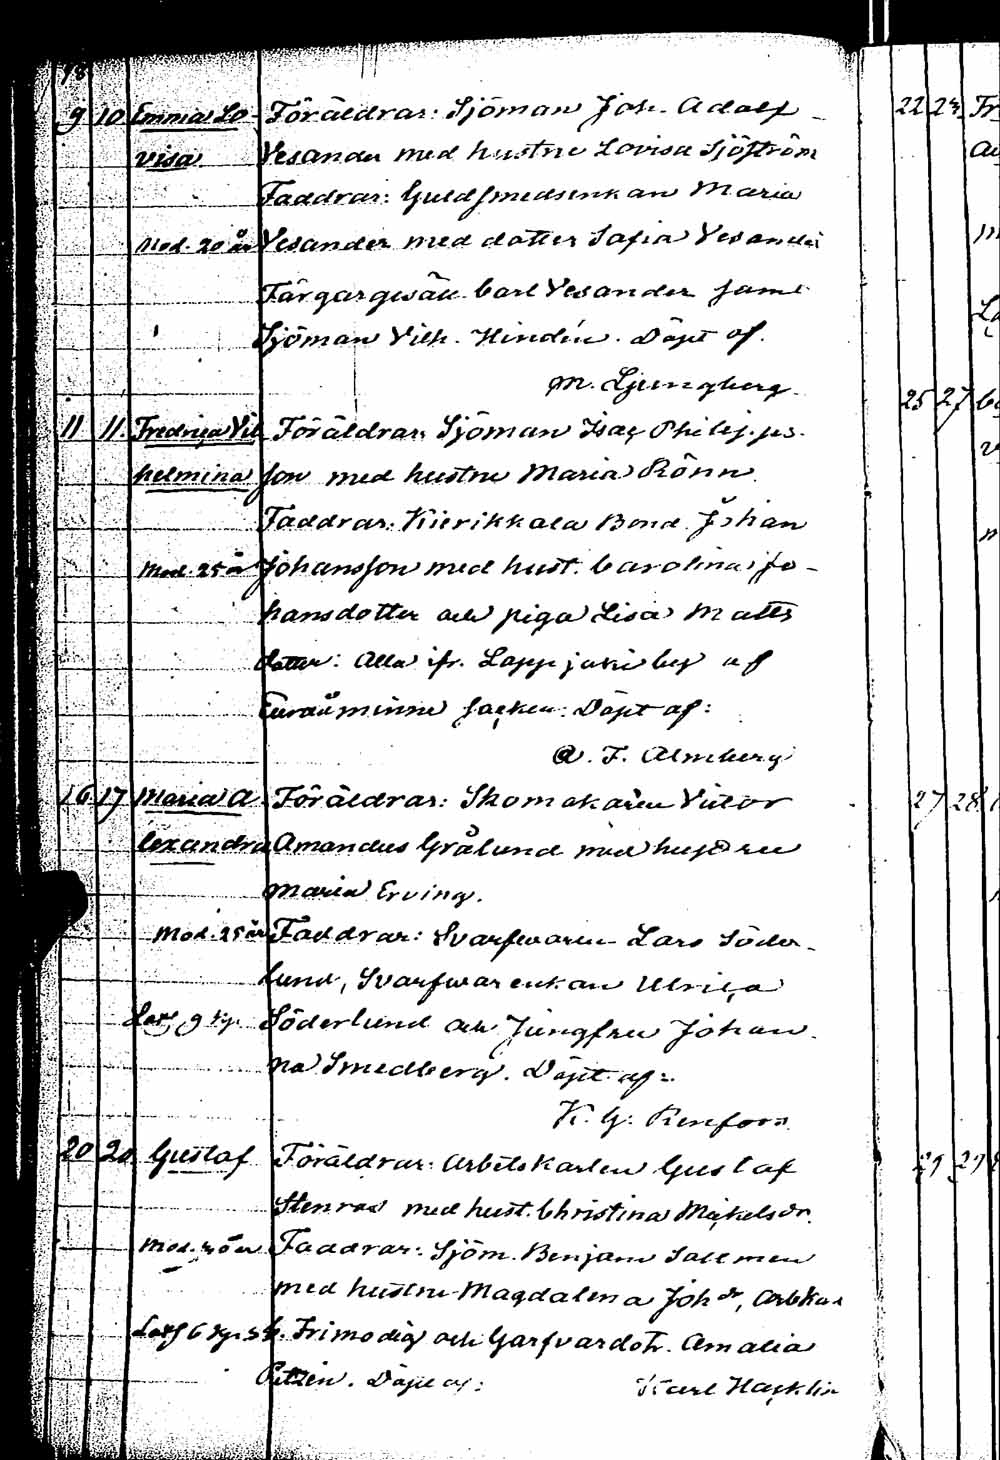 18
9 10 Emma Lo- Föräldrar: Sjöman Joh. Adolf
visa Vesander med hustru Lovisa Sjöström
Faddrar: Guldsmedsenkan Maria
Mod. 20 år Vesander med dotter Sofia Vesander
Färgargesäll Carl Vesander samt
Sjöman Vilh. Hindén. Döpt af.
M. Ljungberg
11 11. Fredrica Vil Föräldrar: Sjöman Isac Philip.ps.
helmina son med hustru Maria Rönn
Faddrar: Kierikkala Bond. Johan
Mod. 25 år Johansson med hust. Carolina Jo-
hansdotter och piga Lisa Matts
dotter: Alla ifr. Lappjoki by af
Euraåminne socken. Döpt af:
A. F. Almberg
16 17 Maria A Föräldrar: Skomakaren Victor
lexandra Amandus Grålund med hustru
Maria Erving.
Mod. 25 år Faddrar: Svarfvaren Lars Söder-
lund, Svarfvarenkan Ulrica
Söderlund och Jungfru Johan-
na Smedberg. Döpt af:
K. G. Renfors
20 20 Gustaf Föräldrar: Arbetskarlen Gustaf
Stenroos med hust. Christina Mickelsdr.
Mod. år Faddrar: Sjöm. Benjam Sallmen
med hustru Magdalena Joh dr, Arbkar
Frimodig och Garfvardotr. Amalia
Döpt af: Karl Hacklin
22 23 Fr
25 27
27 28
29 29